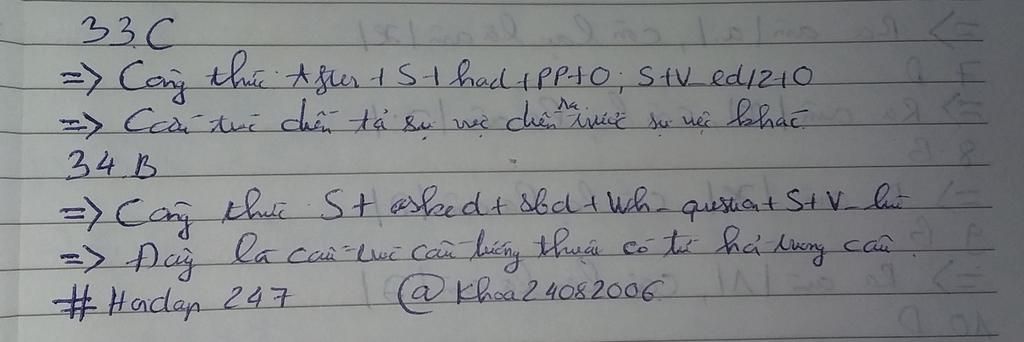 33.C
=> Công thức: After + S + had + PP + O; S + V_ed/2 + O
=> Cấu trúc diễn tả sự việc diễn ra trước sự việc khác.
34 B
=> Công thức S + asked + sbd + Wh_ question + S + V_lùi
=> Đây là cấu trúc câu tường thuật có từ hỏi trong câu.
# Hoidap 247 @Khoa24082006